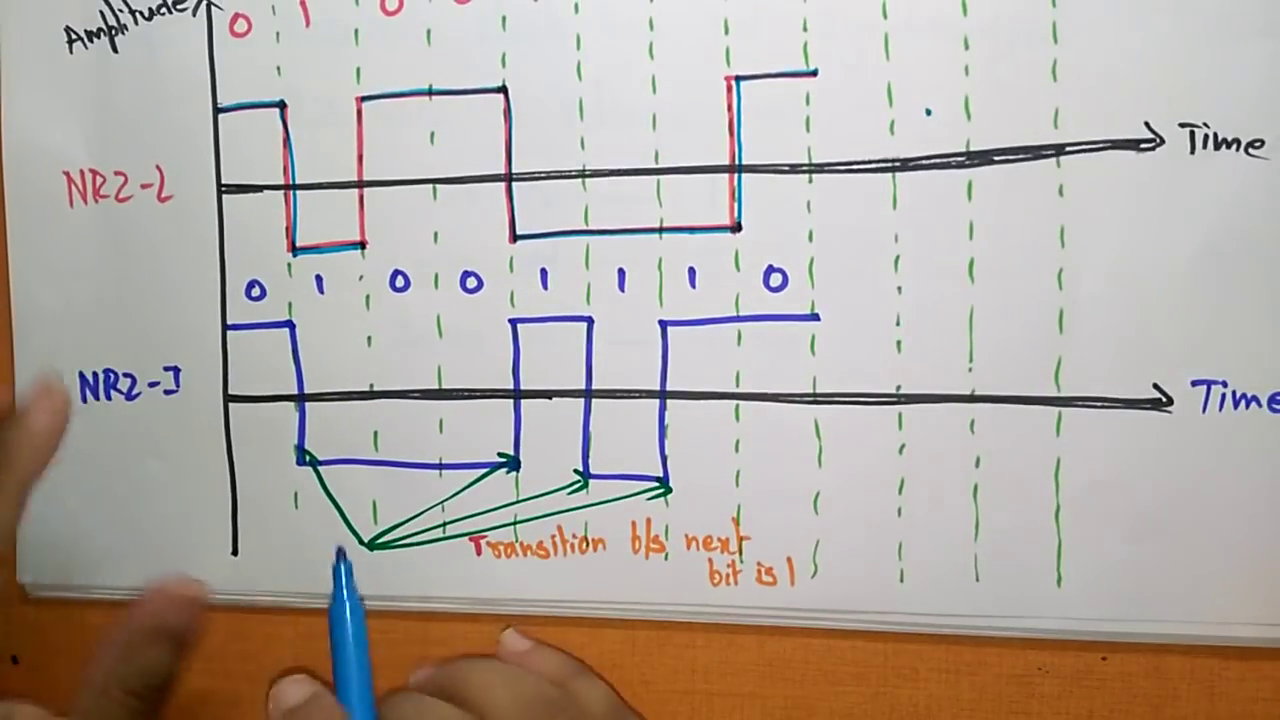 Amplitude
0 1 0
Time
NRZ-L
0 1 0 0 1 1 1 0
NRZ-I
Time
Transition b/s next
bit is 1